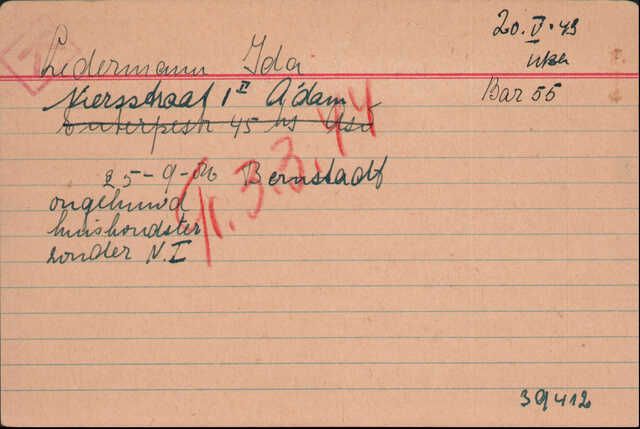 Ledermann Ida
20.V.43
Bar 55
Niersstraat 1 II A'dam
Euterpestr 45 hs Asd
25-9-06 Bernstadt
ongehuwd
huishoudster
zonder N.I
3.3.44
39412